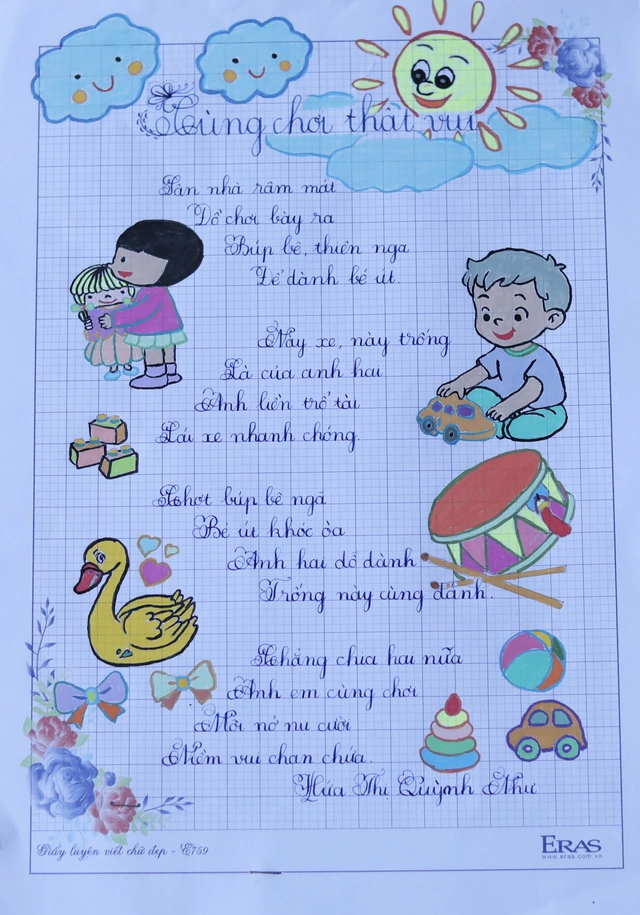 Cùng chơi thật vui
Sàn nhà râm mát
Đồ chơi bày ra
Búp bê, thiên nga
Để dành bé út.
Này xe, này trống
Là của anh hai
Anh liền trổ tài
Lái xe nhanh chóng.
Chợt búp bê ngã
Bé út khóc òa
Anh hai dỗ dành
Trống này cùng đánh.
Chẳng chia hai nữa
Anh em cùng chơi
Môi nở nụ cười
Niềm vui chan chứa.
Hứa Thị Quỳnh Như
Giấy luyện viết chữ đẹp - E759
ERAS
www.eras.com.vn